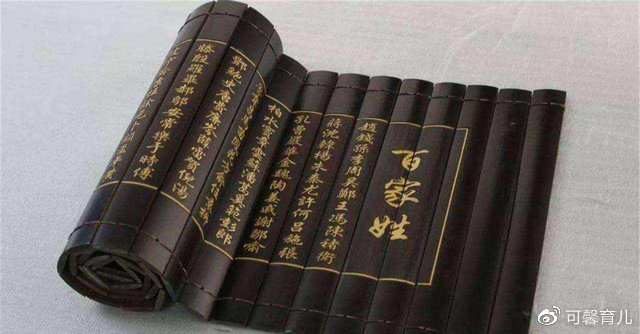 百家姓
趙錢孫李周吳鄭王馮陳褚衛
蔣沈韓楊朱秦尤許何呂施張
孔曹嚴華金魏陶姜戚謝鄒喻
柏水竇章雲蘇潘葛奚范彭郎
酆鮑史唐費廉岑薛雷賀倪湯
滕殷羅畢郝鄔安常樂于時傅
@可馨育儿